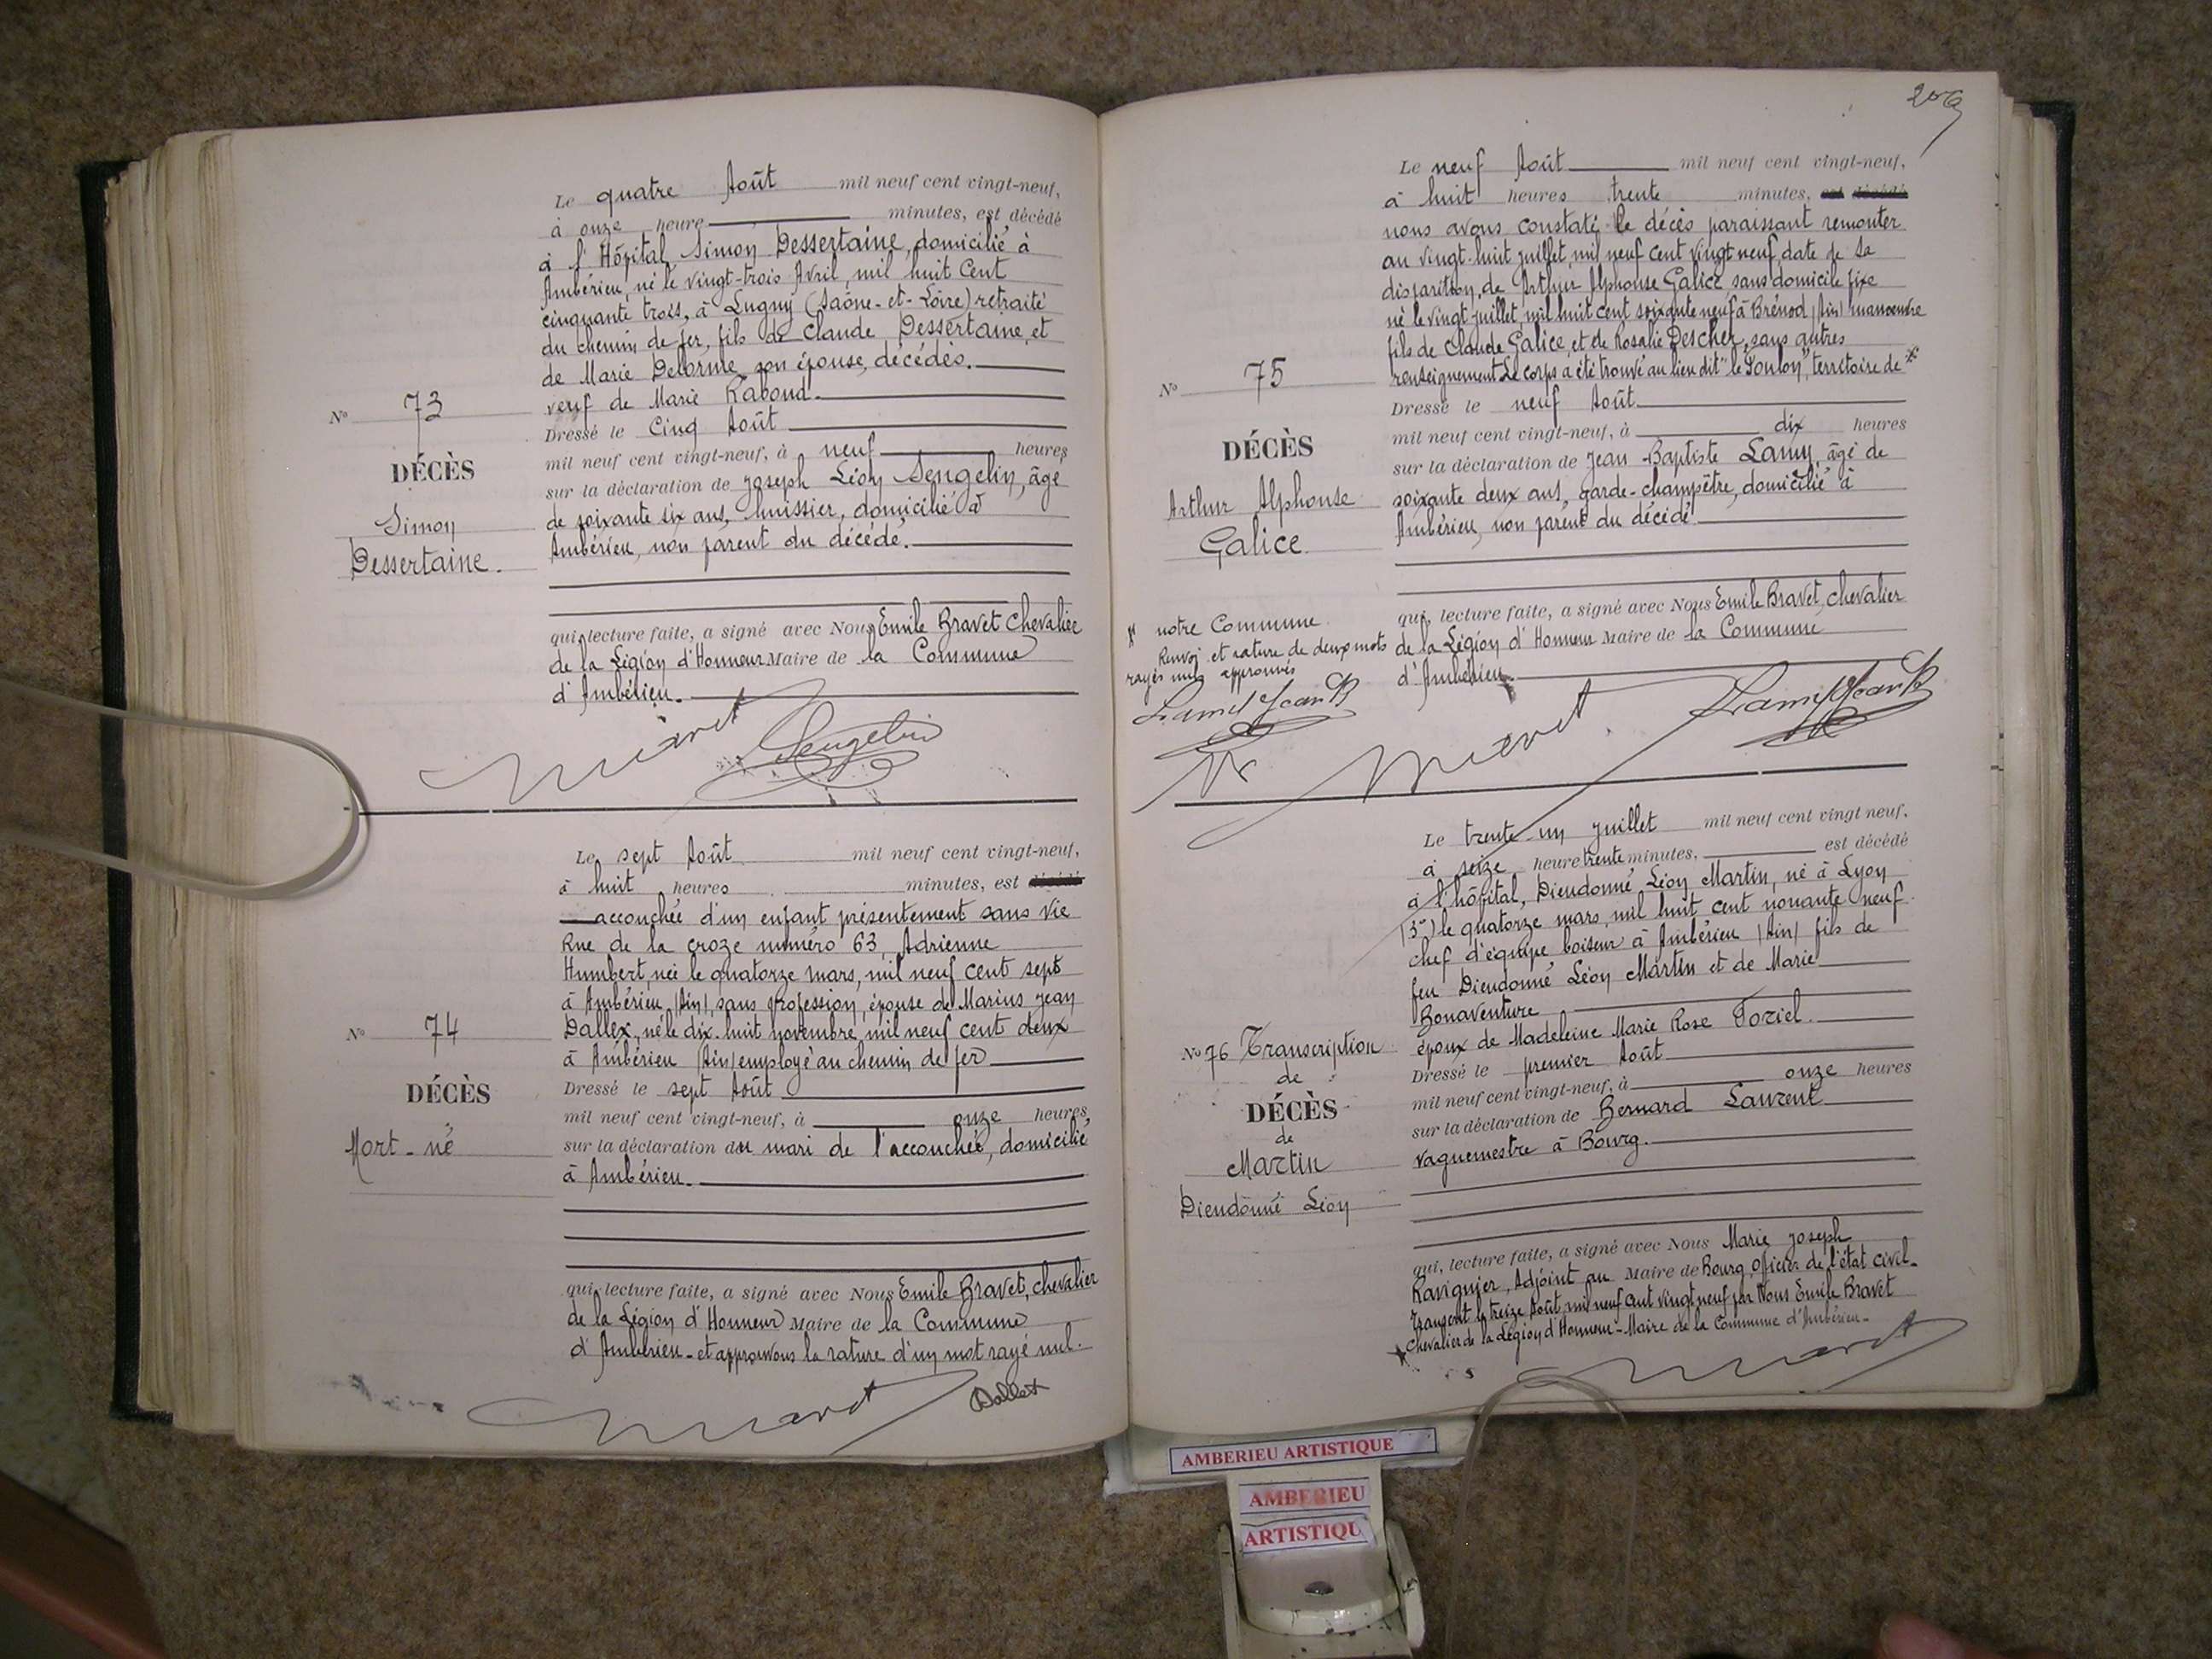 Le quatre Août mil neuf cent vingt-neuf,
à onze heure minutes, est décédé
à l'Hôpital Simon Dessertaine, domicilié à
Ambérieu, né le vingt-trois Avril, mil huit cent
cinquante trois, à Lugny (Saône-et-Loire) retraité
du chemin de fer, fils de Claude Dessertaine, et
de Marie Delorme son épouse, décédés.
veuf de Marie Rabond.
Dressé le Cinq Août
mil neuf cent vingt-neuf, à neuf heures
sur la déclaration de Joseph Léon Sengelin, âgé
de soixante six ans, huissier, domicilié à
Ambérieu, non parent du décédé.
qui, lecture faite, a signé avec Nous Emile Bravet Chevalier
de la Légion d'Honneur Maire de la Commune
d'Ambérieu.
Sengelin
No 73
DÉCÈS
Simon
Dessertaine.
Le sept Août mil neuf cent vingt-neuf,
à huit heures minutes, est décédé
accouchée d'un enfant présentement sans vie
Rue de la croze numéro 63, Adrienne
Humbert, née le quatorze mars, mil neuf cent sept
à Ambérieu (Ain), sans profession, épouse de Marius Jean
Dallex, né le dix-huit novembre mil neuf cent deux
à Ambérieu (Ain) employé au chemin de fer
Dressé le sept Août
mil neuf cent vingt-neuf, à onze heures
sur la déclaration du mari de l'accouchée, domicilié
à Ambérieu.
qui, lecture faite, a signé avec Nous Emile Bravet, chevalier
de la Légion d'Honneur Maire de la Commune
d'Ambérieu - et approuvons la rature d'un mot rayé nul.
Dallex
No 74
DÉCÈS
Mort-né
206
Le neuf Août mil neuf cent vingt-neuf,
à huit heures trente minutes, est décédé
nous avons constaté le décès paraissant remonter
au vingt-huit juillet, mil neuf cent vingt neuf, date de sa
disparition, de Arthur Alphonse Galice sans domicile fixe
né le vingt juillet, mil huit cent soixante neuf à Brénod (Ain) manoeuvre
fils de Claude Galice, et de Rosalie Descher, sans autres
renseignement. Le corps a été trouvé au lieu dit "le Foulon", territoire de *
Dressé le neuf Août
mil neuf cent vingt-neuf, à dix heures
sur la déclaration de Jean-Baptiste Lamy, âgé de
soixante deux ans, garde-champêtre, domicilié à
Ambérieu, non parent du décédé
qui, lecture faite, a signé avec Nous Emile Bravet, chevalier
de la Légion d'Honneur Maire de la Commune
d'Ambérieu.
No 75
DÉCÈS
Arthur Alphonse
Galice.
* notre Commune.
Renvoi et rature de deux mots
rayés nuls approuvés
Le trente-un juillet mil neuf cent vingt neuf,
à seize heure trente minutes, est décédé
à l'hôpital, Dieudonné Léon Martin, né à Lyon
(3me) le quatorze mars, mil huit cent nonante neuf
chef d'équipe boiseur à Ambérieu (Ain) fils de
feu Dieudonné Léon Martin et de Marie
Bonaventure
époux de Madeleine Marie Rose Foriel.
Dressé le premier Août
mil neuf cent vingt-neuf, à onze heures
sur la déclaration de Bernard Laurent
vaguemestre à Bourg.
qui, lecture faite, a signé avec Nous Marie Joseph
Ravignier, Adjoint au Maire de Bourg officier de l'état civil-
transcrit le treize Août mil neuf cent vingt neuf par Nous Emile Bravet
chevalier de la Légion d'Honneur - Maire de la Commune d'Ambérieu-
No 76 Transcription
de
DÉCÈS
de
Martin
Dieudonné Léon
AMBERIEU ARTISTIQUE
AMBERIEU
ARTISTIQU